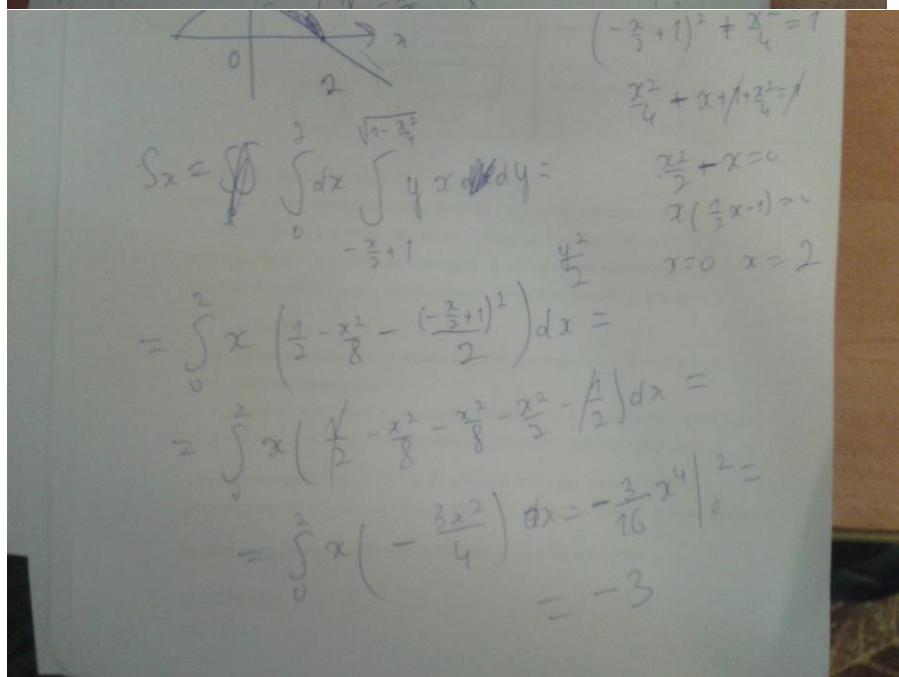 x
0
2
(-x/2+1)² + x²/4 = 1
x²/4 - x + 1 + x²/4 = 1
x²/2 - x = 0
x(1/2 x - 1) = 0
x=0 x=2
Sx = ∫₀² dx ∫_{-x/2+1}^{√(1-x²/4)} y x dy =
y²/2
= ∫₀² x (1/2 - x²/8 - (-x/2+1)²/2) dx =
= ∫₀² x (1/2 - x²/8 - x²/8 - x²/2 - 1/2) dx =
= ∫₀² x (- 3x²/4) dx = - 3/16 x⁴ |₀² =
= -3